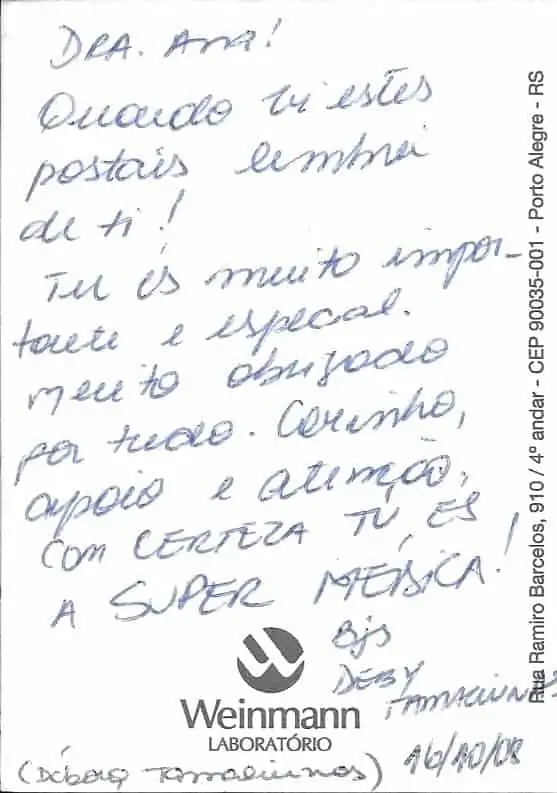 DRA. Ana!
Quando vi estes
postais lembrei
de ti!
Tu és muito impor-
tante e especial.
muito obrigado
por tudo. Carinho,
apoio e atenção.
Com CERTEZA TU ÉS
A SUPER MÉDICA!
Bjs
DEBY
Weinmann
LABORATÓRIO
16/10/08
(Débora
Rua Ramiro Barcelos, 910 / 4º andar - CEP 90035-001 - Porto Alegre - RS